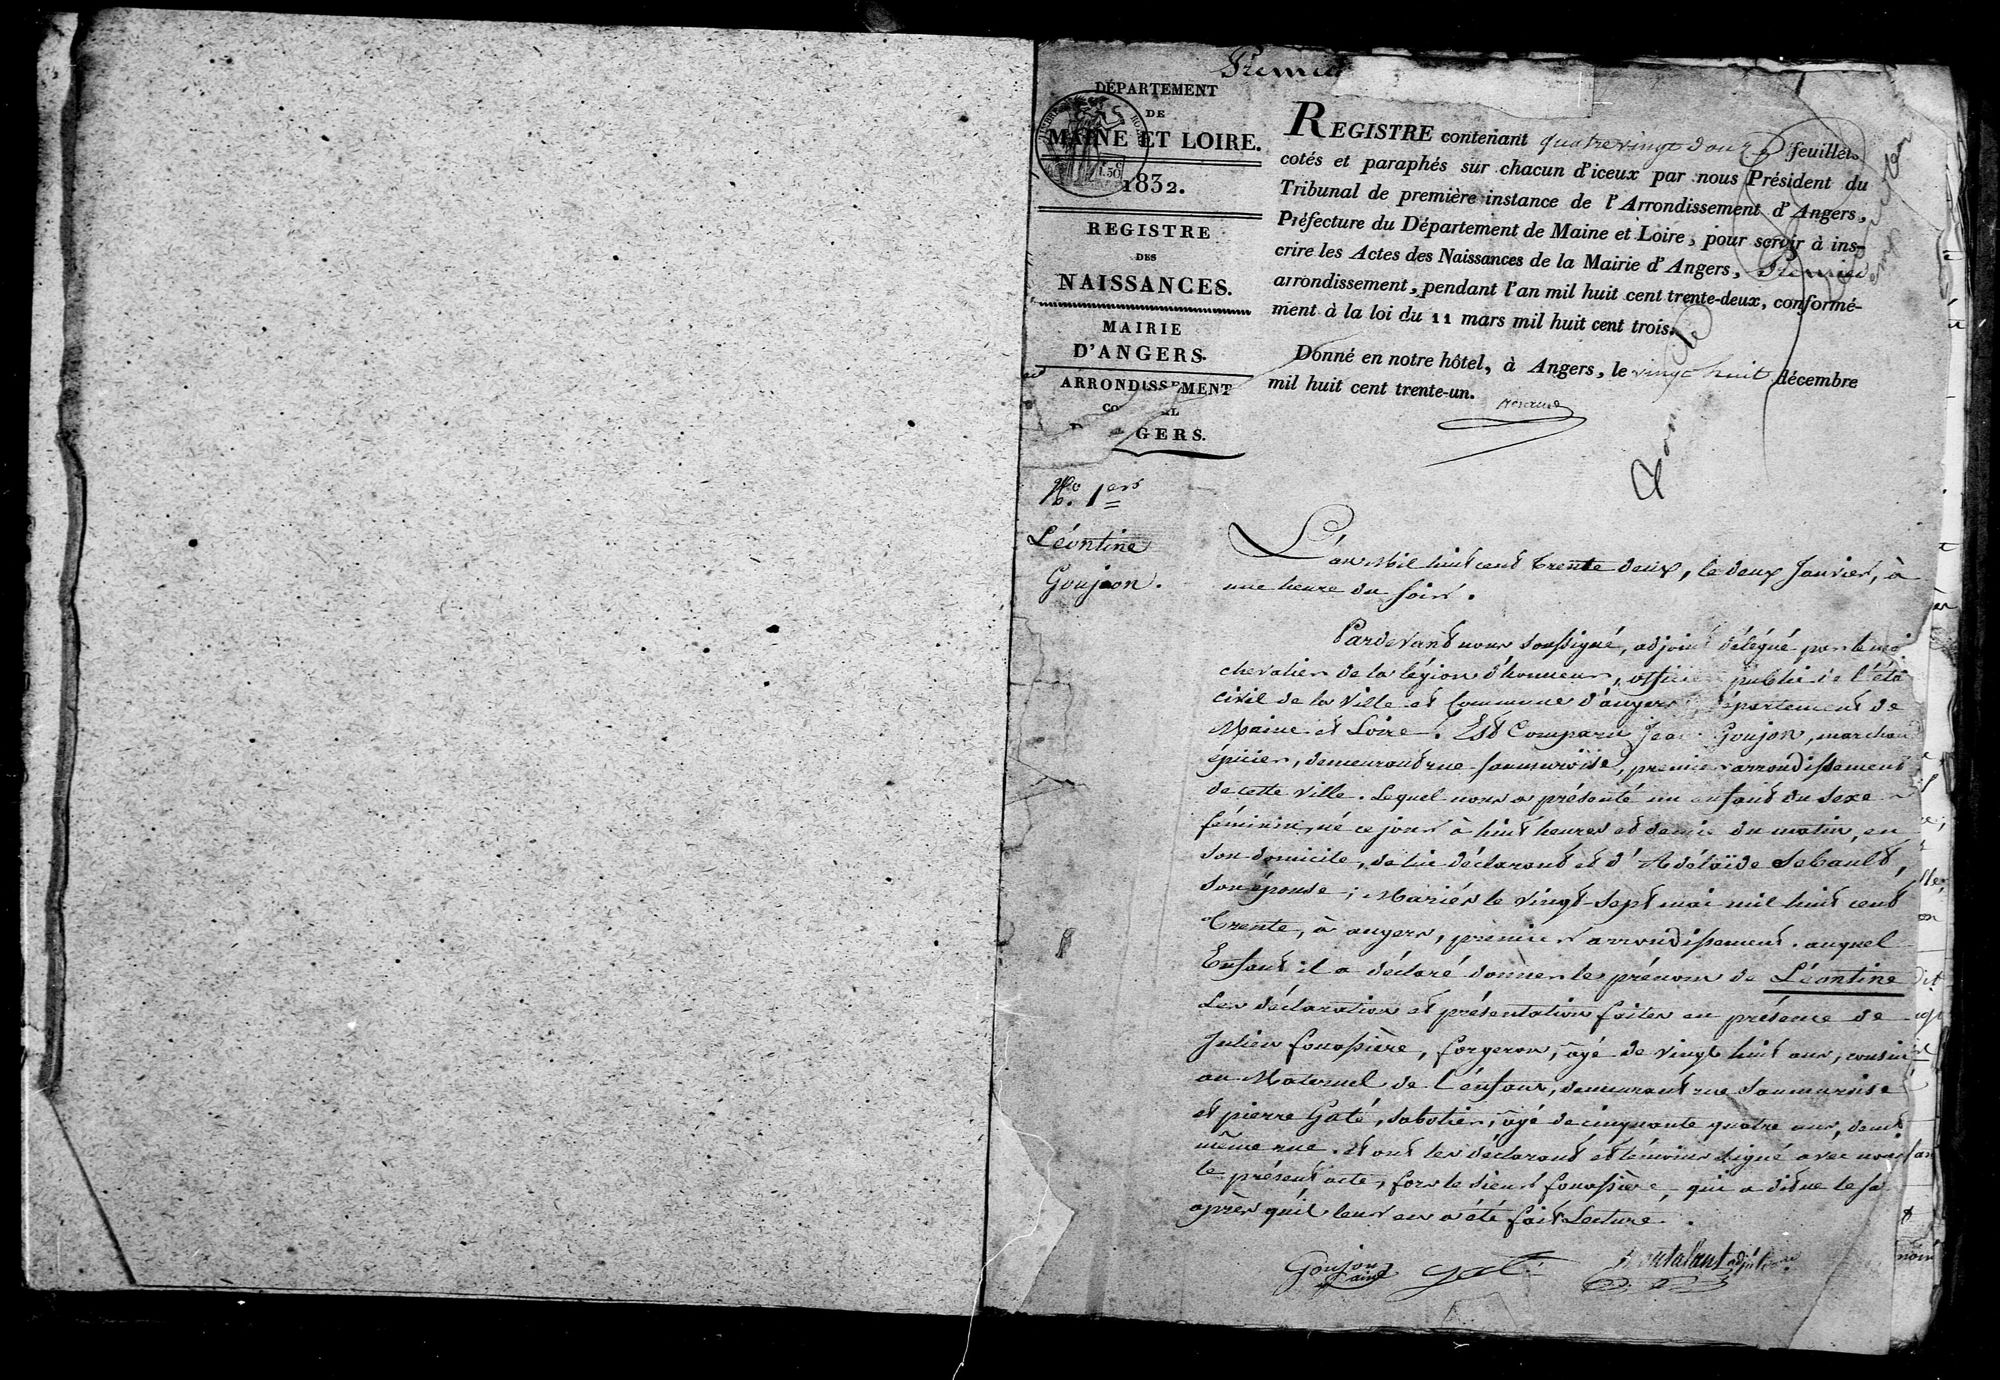 Premier
DÉPARTEMENT
DE
MAINE ET LOIRE.
1832.
REGISTRE
DES
NAISSANCES.
MAIRIE
D'ANGERS.
ARRONDISSEMENT
GERS.
REGISTRE contenant quatrevingt douze feuillets
cotés et paraphés sur chacun d'iceux par nous Président du
Tribunal de première instance de l'Arrondissement d'Angers,
Préfecture du Département de Maine et Loire, pour servir à ins-
crire les Actes des Naissances de la Mairie d'Angers, Premier
arrondissement, pendant l'an mil huit cent trente-deux, conformé-
ment à la loi du 11 mars mil huit cent trois.
Donné en notre hôtel, à Angers, le vingt huit décembre
mil huit cent trente-un.
No. 1er
Léontine
Goujon.
L'an Mil huit cent trente deux, le deux Janvier, à
une heure du soir.
Pardevant nous soussigné, adjoint délégué par le
chevalier de la légion d'honneur, officier public de l'éta
civil de la Ville et Commune d'angers, département de
Maine et Loire. Est Comparu Jean Goujon, marchand
épicier, demeurant rue saumuroise, premier arrondissement
de cette ville. Lequel nous a présenté un enfant du sexe
féminin, né ce jour à huit heures et demie du matin, en
son domicile, de lui déclarant et d'Adélaïde Sebault,
son épouse; Mariés le vingt-sept mai mil huit cent
trente, à angers, premier arrondissement. auquel
Enfant il a déclaré donner le prénom de Léontine
Les déclaration et présentation faites en présence de
Julien fouassière, forgeron, âgé de vingt huit ans, cousin
au Maternel de l'enfant, demeurant rue saumuroise
et pierre Gaté, sabotier, âgé de cinquante quatre ans, demt
même rue. Et ont les déclarant et témoins signé avec nous
le présent acte, fors le sieur fouassière, qui a dit ne le sa
après qu'il leur en a été fait Lecture.
Goujon
ainé
Gaté